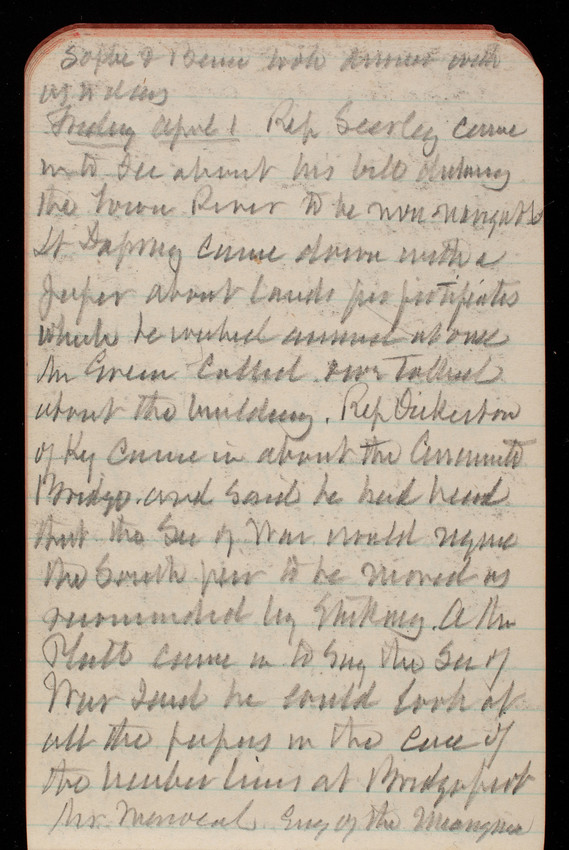 Sophie & Bernie took dinner with
us to day
Friday April 1 Rep Seerley came
in to see about his bill declaring
the Iowa River to be non navigable
Lt came down with a
paper about lands
which he wished at once
Mr Green called over Talked
about the building. Rep Dickerson
of Ky came in about the Cincinnati
Bridge and said he had heard
that the Sec of War would require
the South pier to be moved as
recommended by A Mr
Platt came in to say the Sec of
War said he could look at
all the papers in the case of
the harbor lines at Bridgeport
Mr. Menocal Eng of the